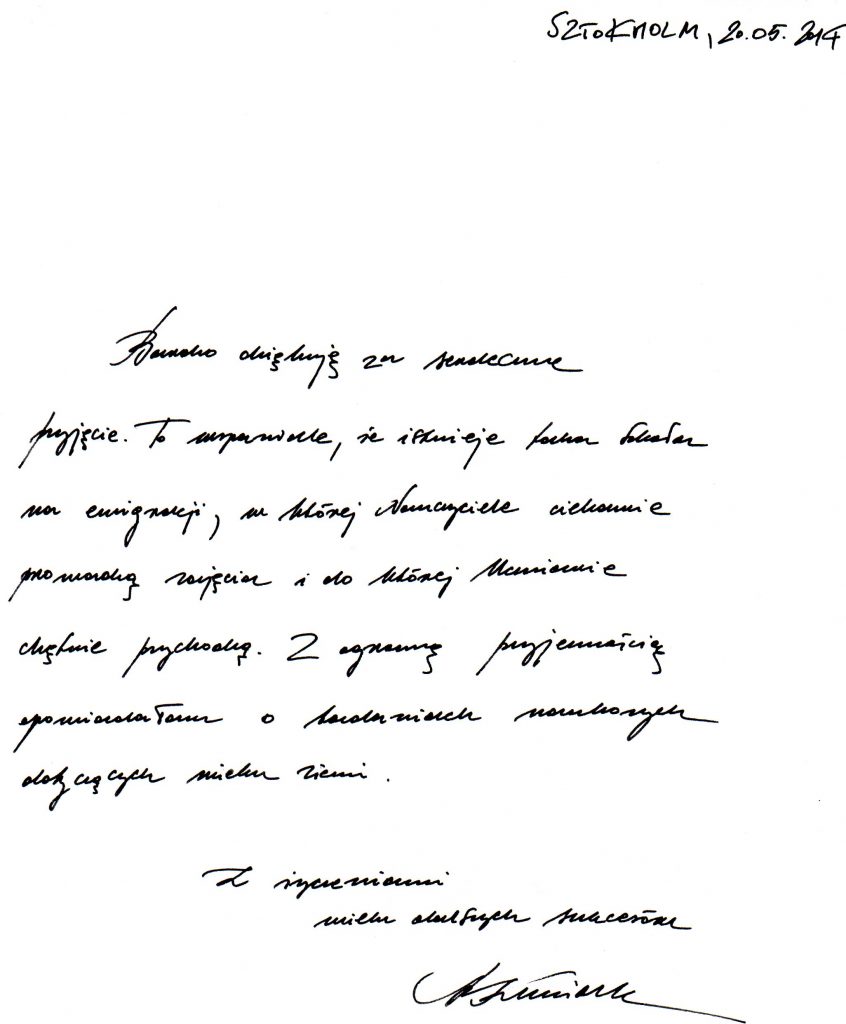 SZTOKHOLM, 20.05.2014
Bardzo dziękuję za serdeczne
przyjęcie. To wspaniałe, że istnieje taka Szkoła
na emigracji, w której Nauczyciele ciekawie
prowadzą zajęcia i do której Uczniowie
chętnie przychodzą. Z ogromną przyjemnością
opowiadałam o badaniach naukowych
dotyczących wieku ziemi.
Z życzeniami
wielu dalszych sukcesów